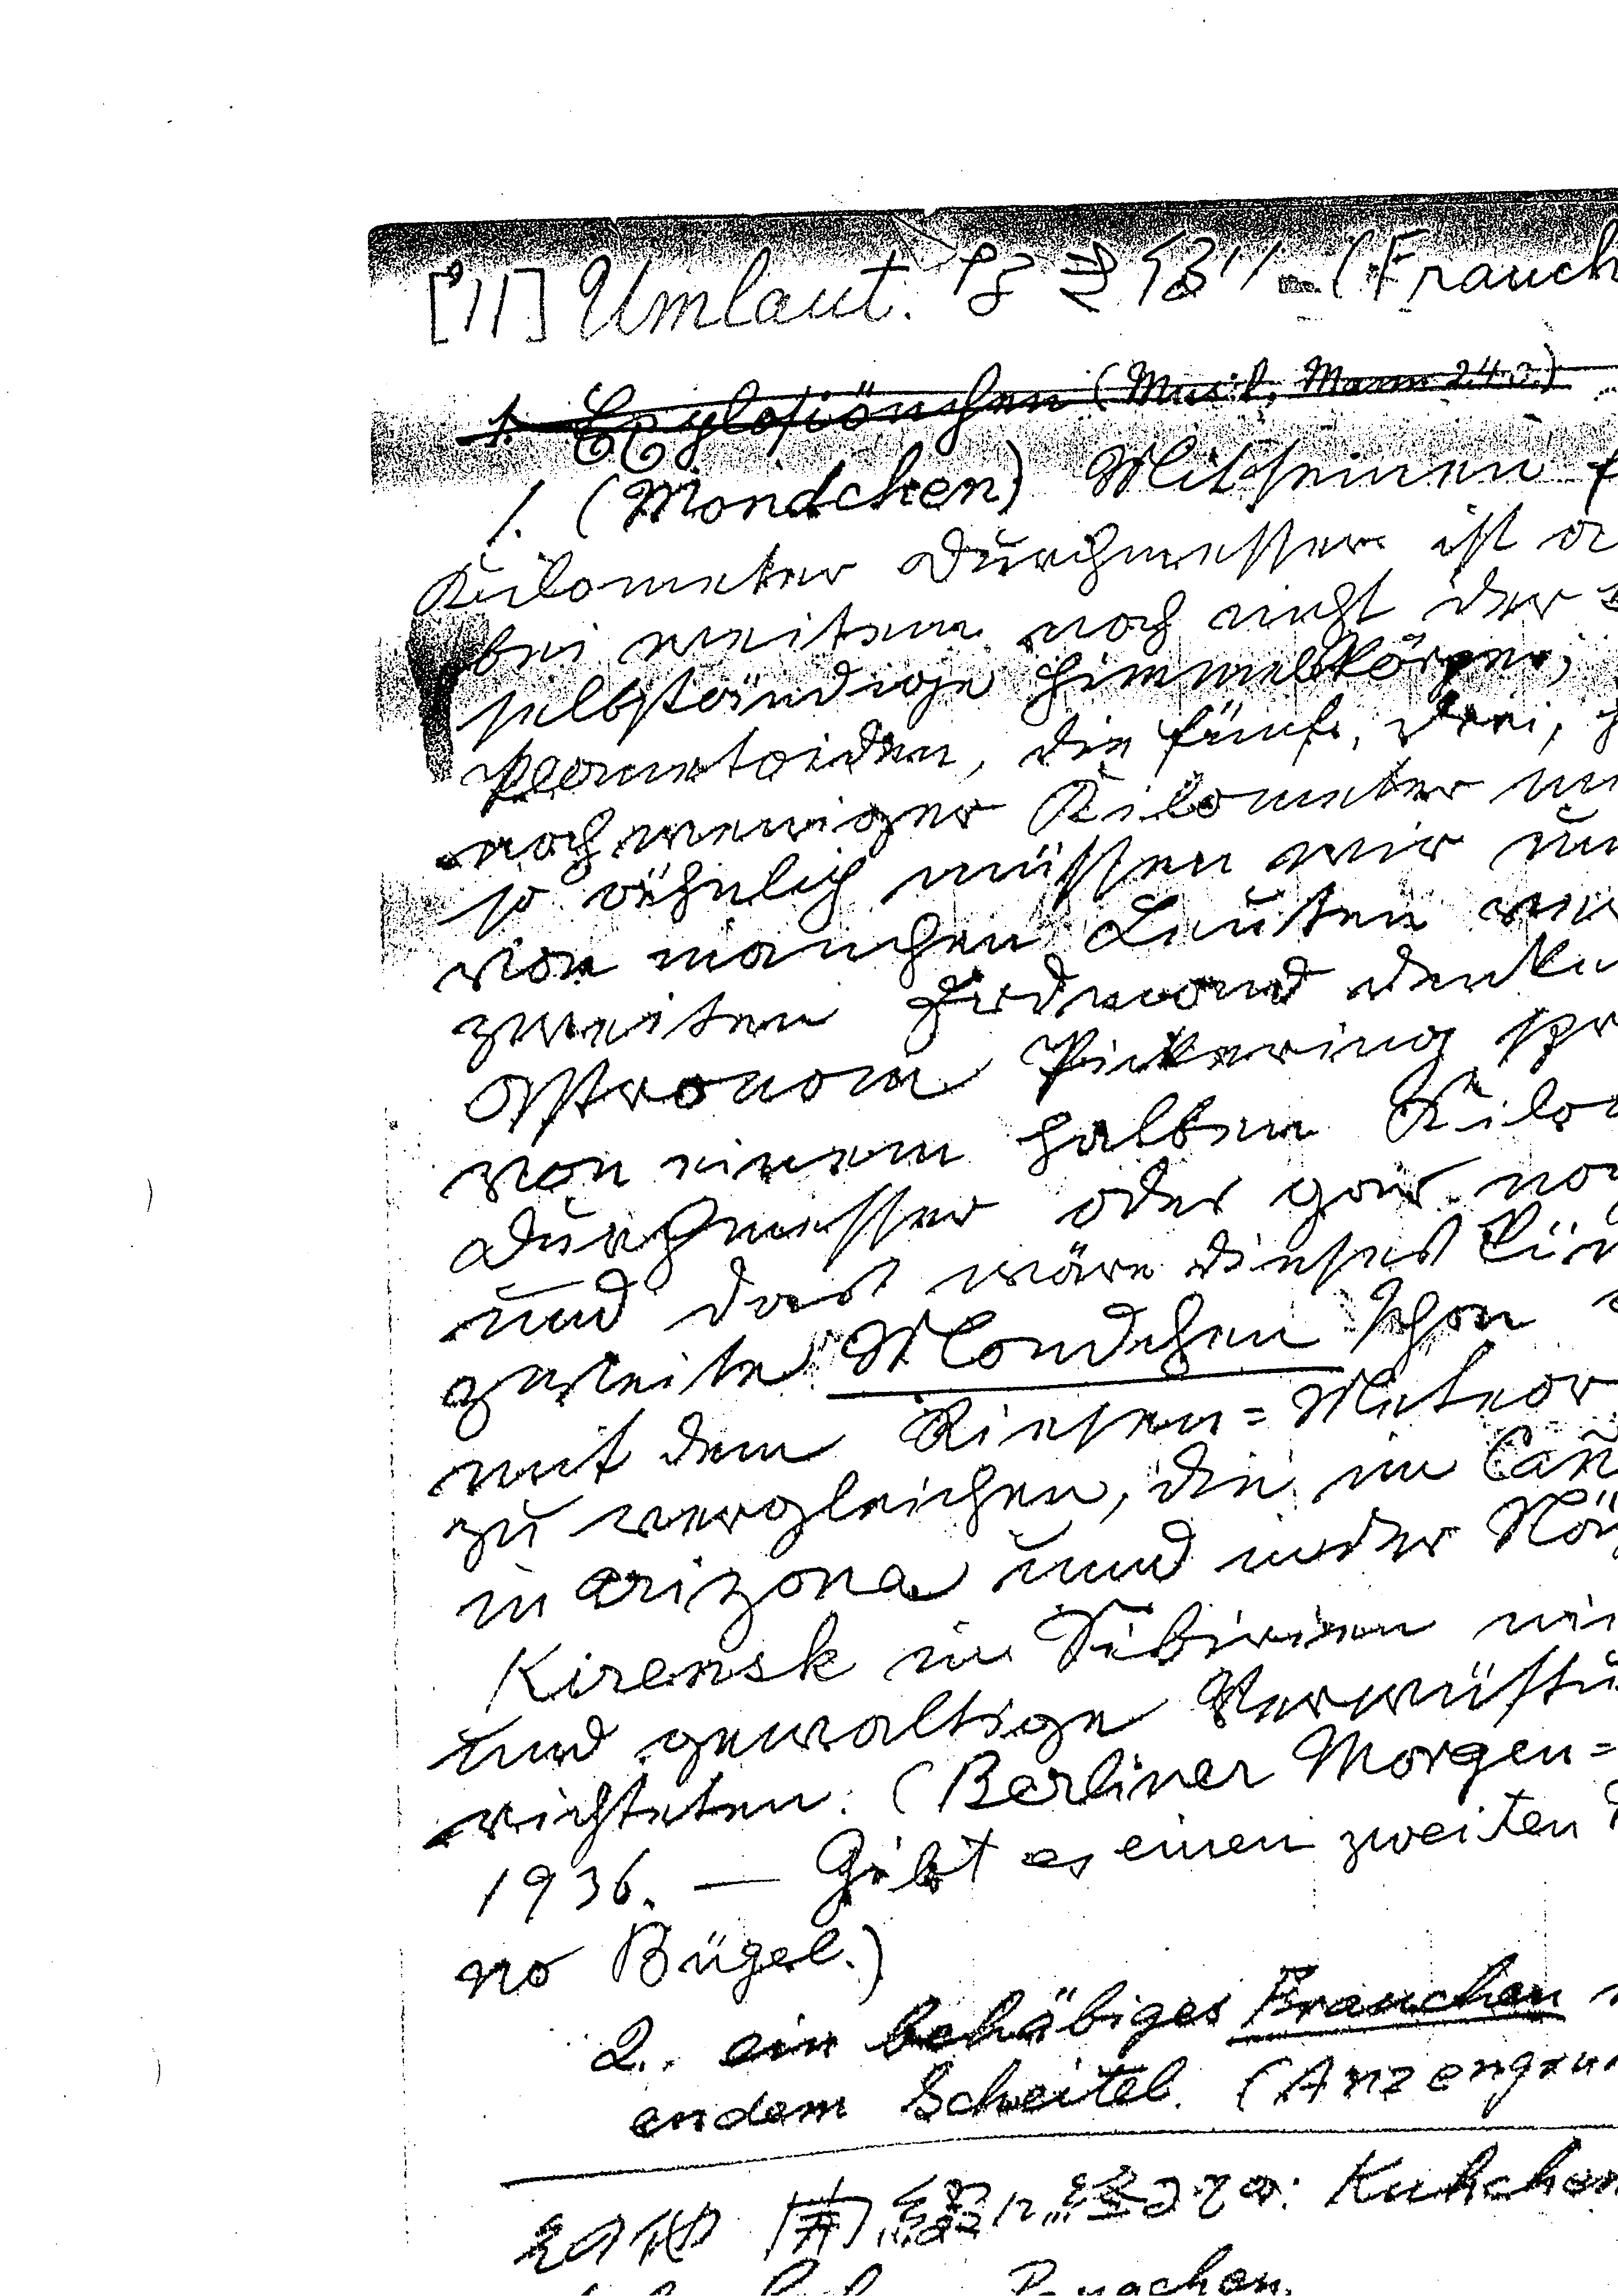 [11] Umlaut. (Frauch
1. Explosiönchen (Musil, Mann 240)
1. (Mondchen) Mit seinen
Kilometer Durchmesser ist
bei weitem noch nicht der
selbständige Himmelskörper;
Planetoiden, die fünf, drei,
noch weniger Kilometer
so ähnlich müssen wir
von manchen Leuten
zweiten Erdmond denken
Astronom Pickering spr
von einem halben Kilo
Durchmesser oder gar
und das wäre dieses
zweite Mondchen schon
mit dem Riesen=Meteor
zu vergleichen, die im Cañ
in Arizona und in der Nä
Kirensk in Sibirien
und gewaltige Verwüstu
richteten. (Berliner Morgen=
1936. — Gibt es einen zweiten
no Bügel.)
2. ein behäbiges Frauchen
endem Scheitel. (Anzengru
Kuhchen